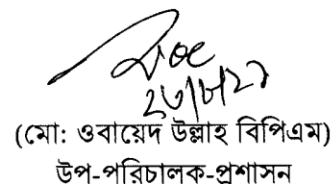 (মো: ওবায়েদ উল্লাহ বিপিএম)
উপ-পরিচালক-প্রশাসন